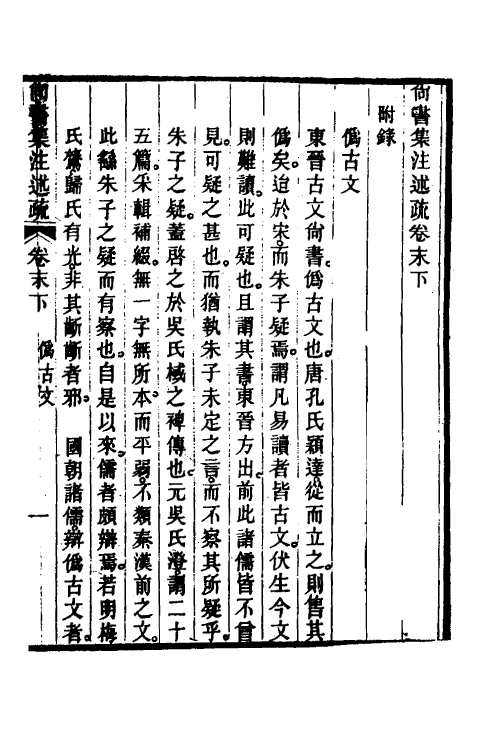 尚書集注述疏卷末下
附錄
僞古文
東晉古文尙書僞古文也。唐孔氏穎達從而立之。則售其
僞矣。迨於宋。而朱子疑焉。謂凡易讀者皆古文。伏生今文
則難讀。此可疑也。且謂其書。東晉方出。前此諸儒皆不曾
見。可疑之甚也。而猶執朱子未定之言。而不察其所疑乎。
朱子之疑。蓋啓之於吳氏棫之裨傳也。元吳氏澄。謂二十
五篇。采輯補綴。無一字無所本。而平弱。不類秦漢前之文。
此繇朱子之疑而有察也。自是以來。儒者頗辯焉。若明梅
氏鷟歸氏有光。非其斷斷者邪。　國朝諸儒。辯僞古文者。
尚書集注述疏　卷末下　僞古文　一